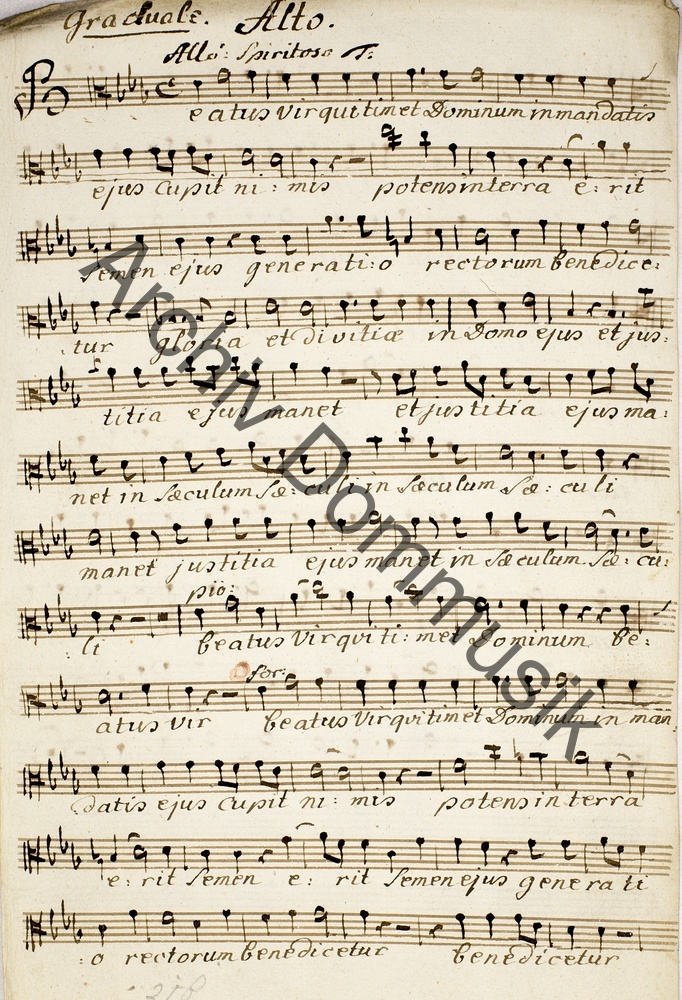 Graduale. Alto.
Allo: Spiritoso T:
Beatus Vir qui timet Dominum in mandatis
ejus Cupit ni: mis potens in terra e: rit
Semen ejus generati: o rectorum benedice:
:tur gloria et divitiæ in Domo ejus et jus:
titia ejus manet et justitia ejus ma:
net in Sæculum Sæ: culi in Sæculum Sæ: culi
manet justitia ejus manet in Sæculum Sæ: cu:
pio:
:li beatus Vir qui ti: met Dominum be:
for:
atus vir beatus Vir qui timet Dominum in man
datis ejus Cupit ni: mis potens in terra
e: rit Semen e: rit Semen ejus generati
:o rectorum benedicetur benedicetur
318
Archiv Dommusik